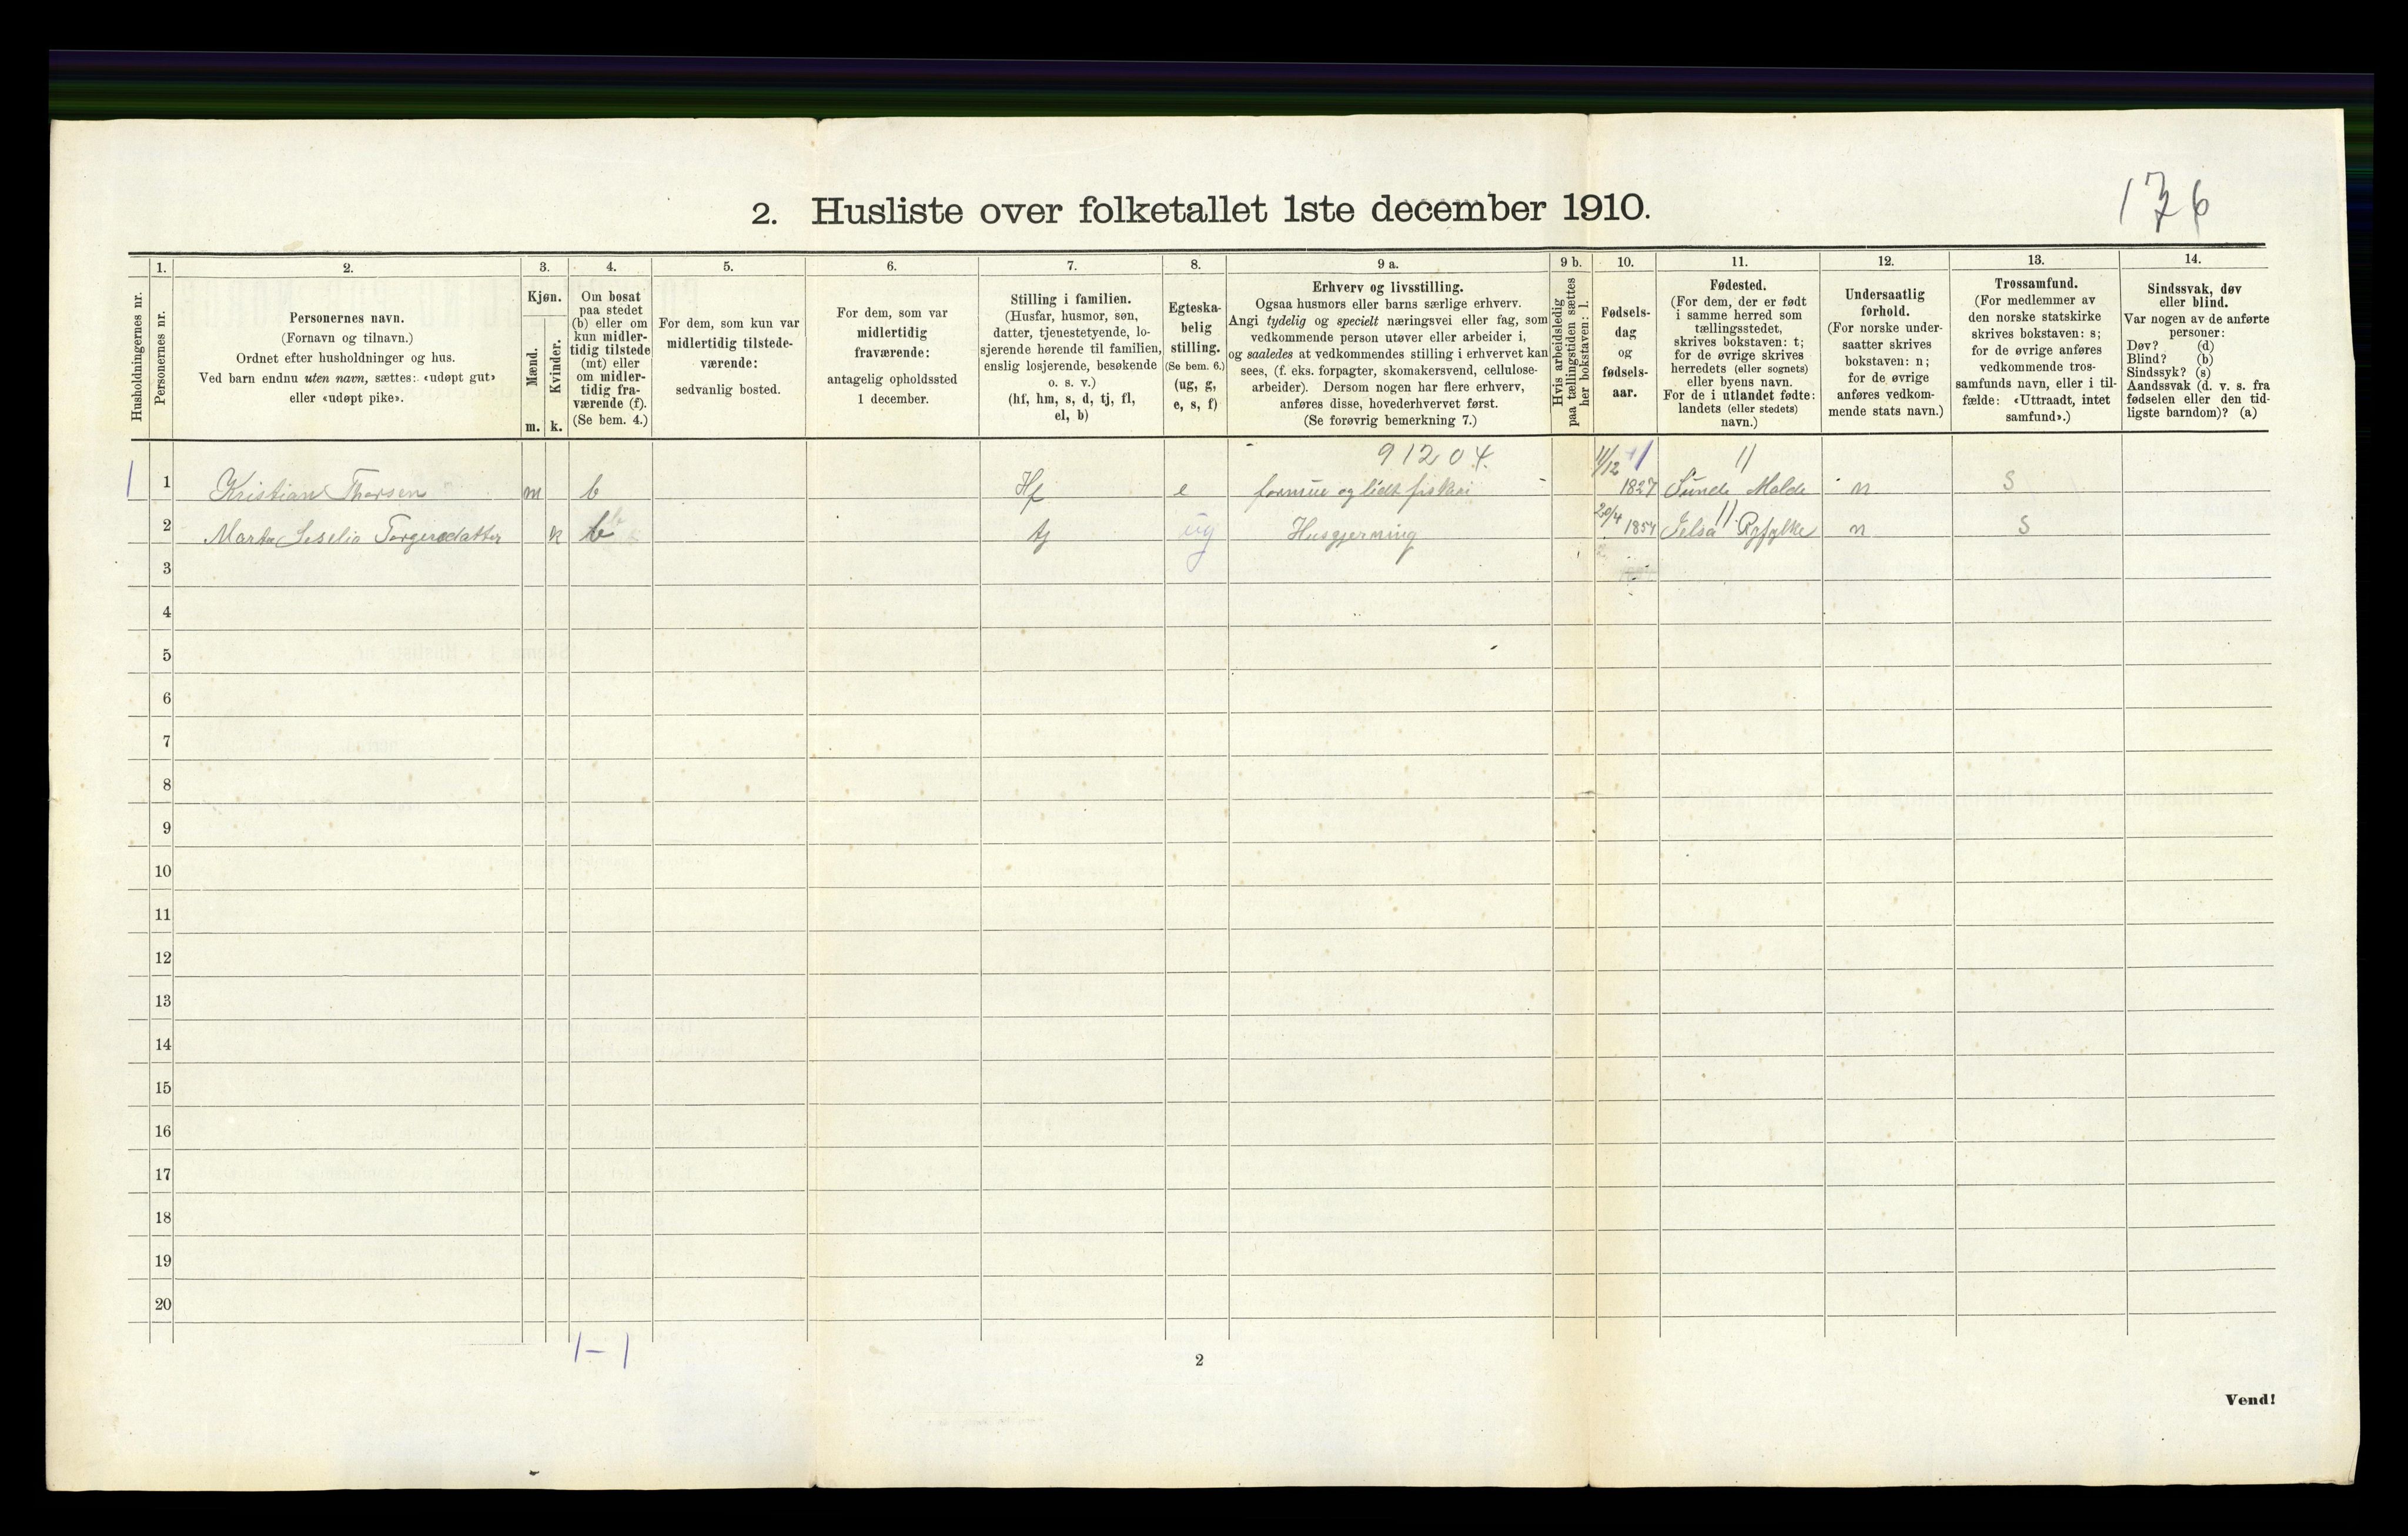 2. Husliste over folketallet 1ste december 1910.
176
Husholdningernes nr.
1.
Personernes nr.
2.
Personernes navn.
(Fornavn og tilnavn.)
Ordnet efter husholdninger og hus.
Ved barn endnu uten navn, sættes: «udøpt gut»
eller «udøpt pike».
3.
Kjøn.
Mænd.
Kvinder.
m. k.
4.
Om bosat
paa stedet
(b) eller om
kun midler-
tidig tilstede
(mt) eller
om midler-
tidig fra-
værende (f).
(Se bem. 4.)
5.
For dem, som kun var
midlertidig tilstede-
værende:
sedvanlig bosted.
6.
For dem, som var
midlertidig
fraværende:
antagelig opholdssted
1 december.
7.
Stilling i familien.
(Husfar, husmor, søn,
datter, tjenestetyende, lo-
sjerende hørende til familien,
enslig losjerende, besøkende
o. s. v.)
(hf, hm, s, d, tj, fl,
el, b)
8.
Egteska-
belig
stilling.
(Se bem. 6.)
(ug, g,
e, s, f)
9 a.
Erhverv og livsstilling.
Ogsaa husmors eller barns særlige erhverv.
Angi tydelig og specielt næringsvei eller fag, som
vedkommende person utøver eller arbeider i,
og saaledes at vedkommendes stilling i erhvervet kan
sees, (f. eks. forpagter, skomakersvend, cellulose-
arbeider). Dersom nogen har flere erhverv,
anføres disse, hovederhvervet først.
(Se forøvrig bemerkning 7.)
9 b.
Hvis arbeidsledig
paa tællingstiden sættes
her bokstaven: l.
10.
Fødsels-
dag
og
fødsels-
aar.
11.
Fødested.
(For dem, der er født
i samme herred som
tællingsstedet,
skrives bokstaven: t;
for de øvrige skrives
herredets (eller sognets)
eller byens navn.
For de i utlandet fødte:
landets (eller stedets)
navn.)
12.
Undersaatlig
forhold.
(For norske under-
saatter skrives
bokstaven: n;
for de øvrige
anføres vedkom-
mende stats navn.)
13.
Trossamfund.
(For medlemmer av
den norske statskirke
skrives bokstaven: s;
for de øvrige anføres
vedkommende tros-
samfunds navn, eller i til-
fælde: «Uttraadt, intet
samfund».)
14.
Sindssvak, døv
eller blind.
Var nogen av de anførte
personer:
Døv? (d)
Blind? (b)
Sindssyk? (s)
Aandssvak (d. v. s. fra
fødselen eller den tid-
ligste barndom)? (a)
91204. 11
1 1 Kristian Thorsen m b Hf e formue og lidt fiskeri 11/12 1827 Sunde Malde n S
11
2 Marta Seselia Torgersdatter k b tj ug Husgjerning 20/4 1854 Jelsa Ryfylke n S
3
4
5
6
7
8
9
10
11
12
13
14
15
16
17
18
19
20
1 – 1
2
Vend!